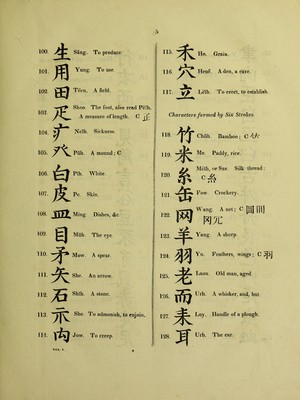 5
100. 生 Săng. To produce
101. 用 Yung. To use.
102. 田 Tëen. A field.
103. 疋 Shoo The foot, also read Peĭh. A measure of length. C
104. 疒 Neĭh. Sickness.
105. 癶 Pŭh. A mound; C
106. 白 Pĭh. White.
107. 皮 Pe. Skin.
108. 皿 Ming Dishes, &c
109. 目 Mŭh. The eye
110. 矛 Mow. A spear.
111. 矢 She. An arrow.
112. 石 Shĭh. A stone.
113. 示 She. To admonish, to enjoin.
114. 禸 Jow. To creep.
115. 禾 Ho. Grain.
116. 穴 Heuĕ. A den, a cave.
117. 立 Leĭh. To erect, to establish.
Characters formed by Six Strokes
118. 竹 Chŭh. Bamboo; C
119. 米 Me. Paddy, rice.
120. 糸 Meĭh, or Sze. Silk thread: C 糹
121. 缶 Fow. Crockery.
122. 网 Wang. A net; C
123. 羊 Yang. A sheep.
124. 羽 Yu. Feathers, wings; C 羽
125. 老 Laou. Old man, aged
126. 而 Urh. A whisker, and, but
127. 耒 Luy. Handle of a plough.
128. 耳 Urh. The ear.